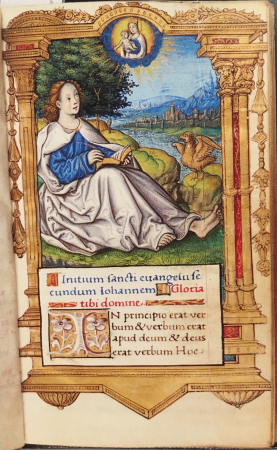 Initium sancti euangelii se
cundum Iohannem Gloria
tibi domine.
IN principio erat ver
bum & verbum erat
apud deum & deus
erat verbum Hoc